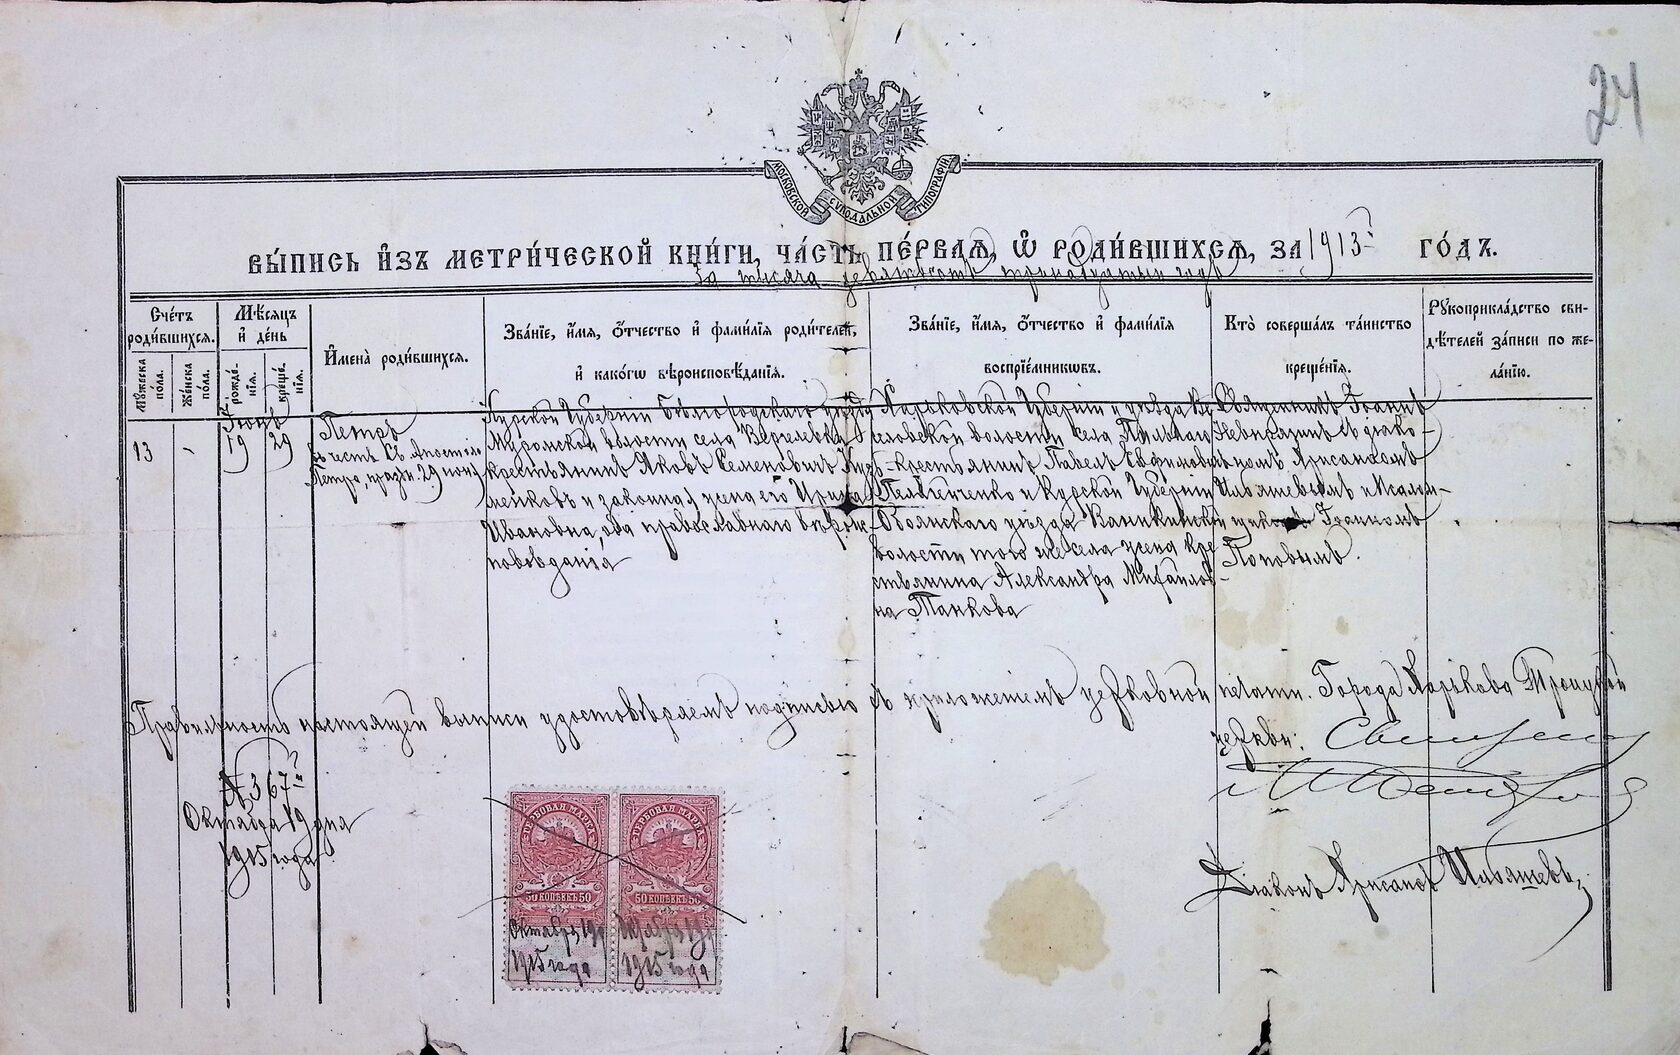 24
МОСКОВСКОЙ СУНОДАЛЬНОЙ ТИПОГРАФІИ
ВЫ́ПИСЬ И҆́ЗЪ МЕТРИ́ЧЕСКОЙ КНИ́ГИ, ЧА́СТЬ ПЕ́РВАѦ, Ѡ҆ РОДИ́ВШИХСѦ, ЗА 1913-й ГО́ДЪ.
За тысяча девятьсотъ тринадцатый годъ
Сче́тъ роди́вшихсѧ.
Мꙋ́жеска по́ла.
Же́нска по́ла.
Мѣ́сѧцъ и҆ де́нь
рожде́нїѧ.
креще́нїѧ.
И҆мена̀ роди́вшихсѧ.
Зва́нїе, и҆́мѧ, ѻ҆́тчество и҆ фами́лїѧ роди́телей,
и҆ како́гѡ вѣроисповѣ́данїѧ.
Зва́нїе, и҆́мѧ, ѻ҆́тчество и҆ фами́лїѧ
воспрїе́мникѡвъ.
Кто̀ соверша́лъ та́инство
креще́нїѧ.
Рꙋкоприкла́дство сви-
дѣ́телей за́писи по же-
ла́нїю.
13
-
Іюнь
19
29
Петръ
въ честь Св. Апостола
Петра, празн. 29 іюня
Курской Губерніи Бѣлгородскаго уѣзда
Муромской волости села
крестьянинъ Яковъ Семеновичъ
и законная жена его Ирина
Ивановна, оба православнаго вѣроис-
повѣданія
Харьковской Губерніи и уѣзда Ве-
селовской волости села
крестьянинъ Павелъ Евфимовичъ
и Курской Губерніи
Обоянскаго уѣзда
волости того же села жена кре-
стьянина Александра Михайлов-
на Танкова
Священникъ Іоаннъ
съ діако-
номъ Хрисанфомъ
Ильяшевымъ и псалом-
щикомъ Іоанномъ
Поповымъ.
Правильность настоящей выписи удостовѣряемъ подписью съ приложеніемъ церковной печати. Города Харькова Троицкой
церкви: Священникъ
№ 367-й
Октября 19 дня
1915 года
ГЕРБОВАЯ МАРКА
ГЕРБОВАЯ МАРКА
50 КОПѢЕКЪ 50
50 КОПѢЕКЪ 50
Октября 19
1915 года
Октября 19
1915 года
Діаконъ Хрисанфъ Ильяшевъ